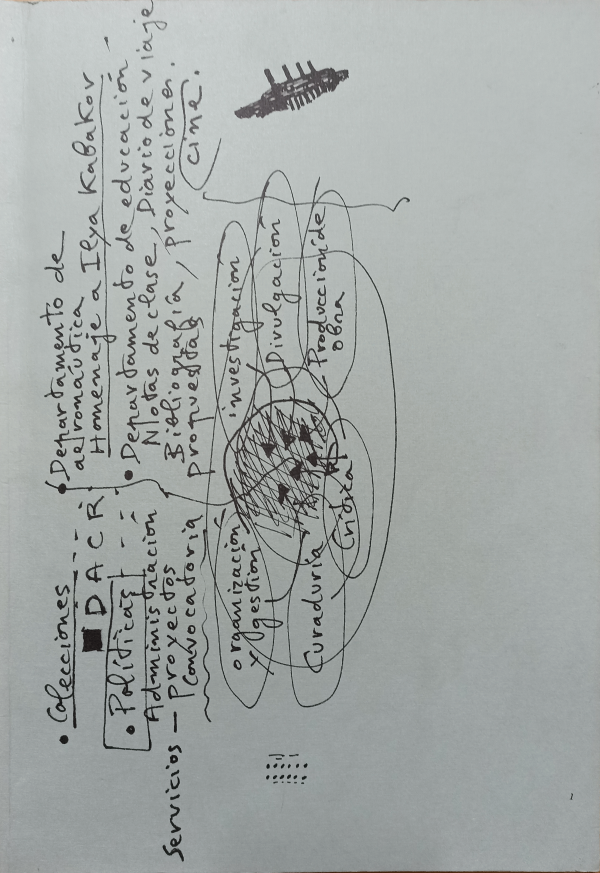 • Colecciones
DACR
• Políticas
Administración
Servicios — Proyectos
Convocatoria
• Departamento de
aeronáutica
Homenaje a Ilya Kabakov
• Departamento de educación -
Notas de clase, Diario de viaje
Bibliografía, proyecciones.
propuestas
cine.
organización
y gestión
investigación
Divulgación
Producción de
obra
Curaduría
Crítica
1